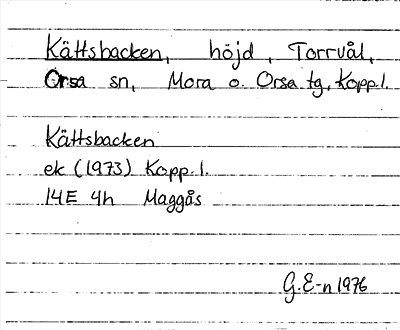 Kättsbacken, höjd, Torrvål,
Orsa sn, Mora o. Orsa tg, Kopp.l.
Kättsbacken
ek (1973) Kopp.l.
14E 4h Maggås
G.E-n 1976